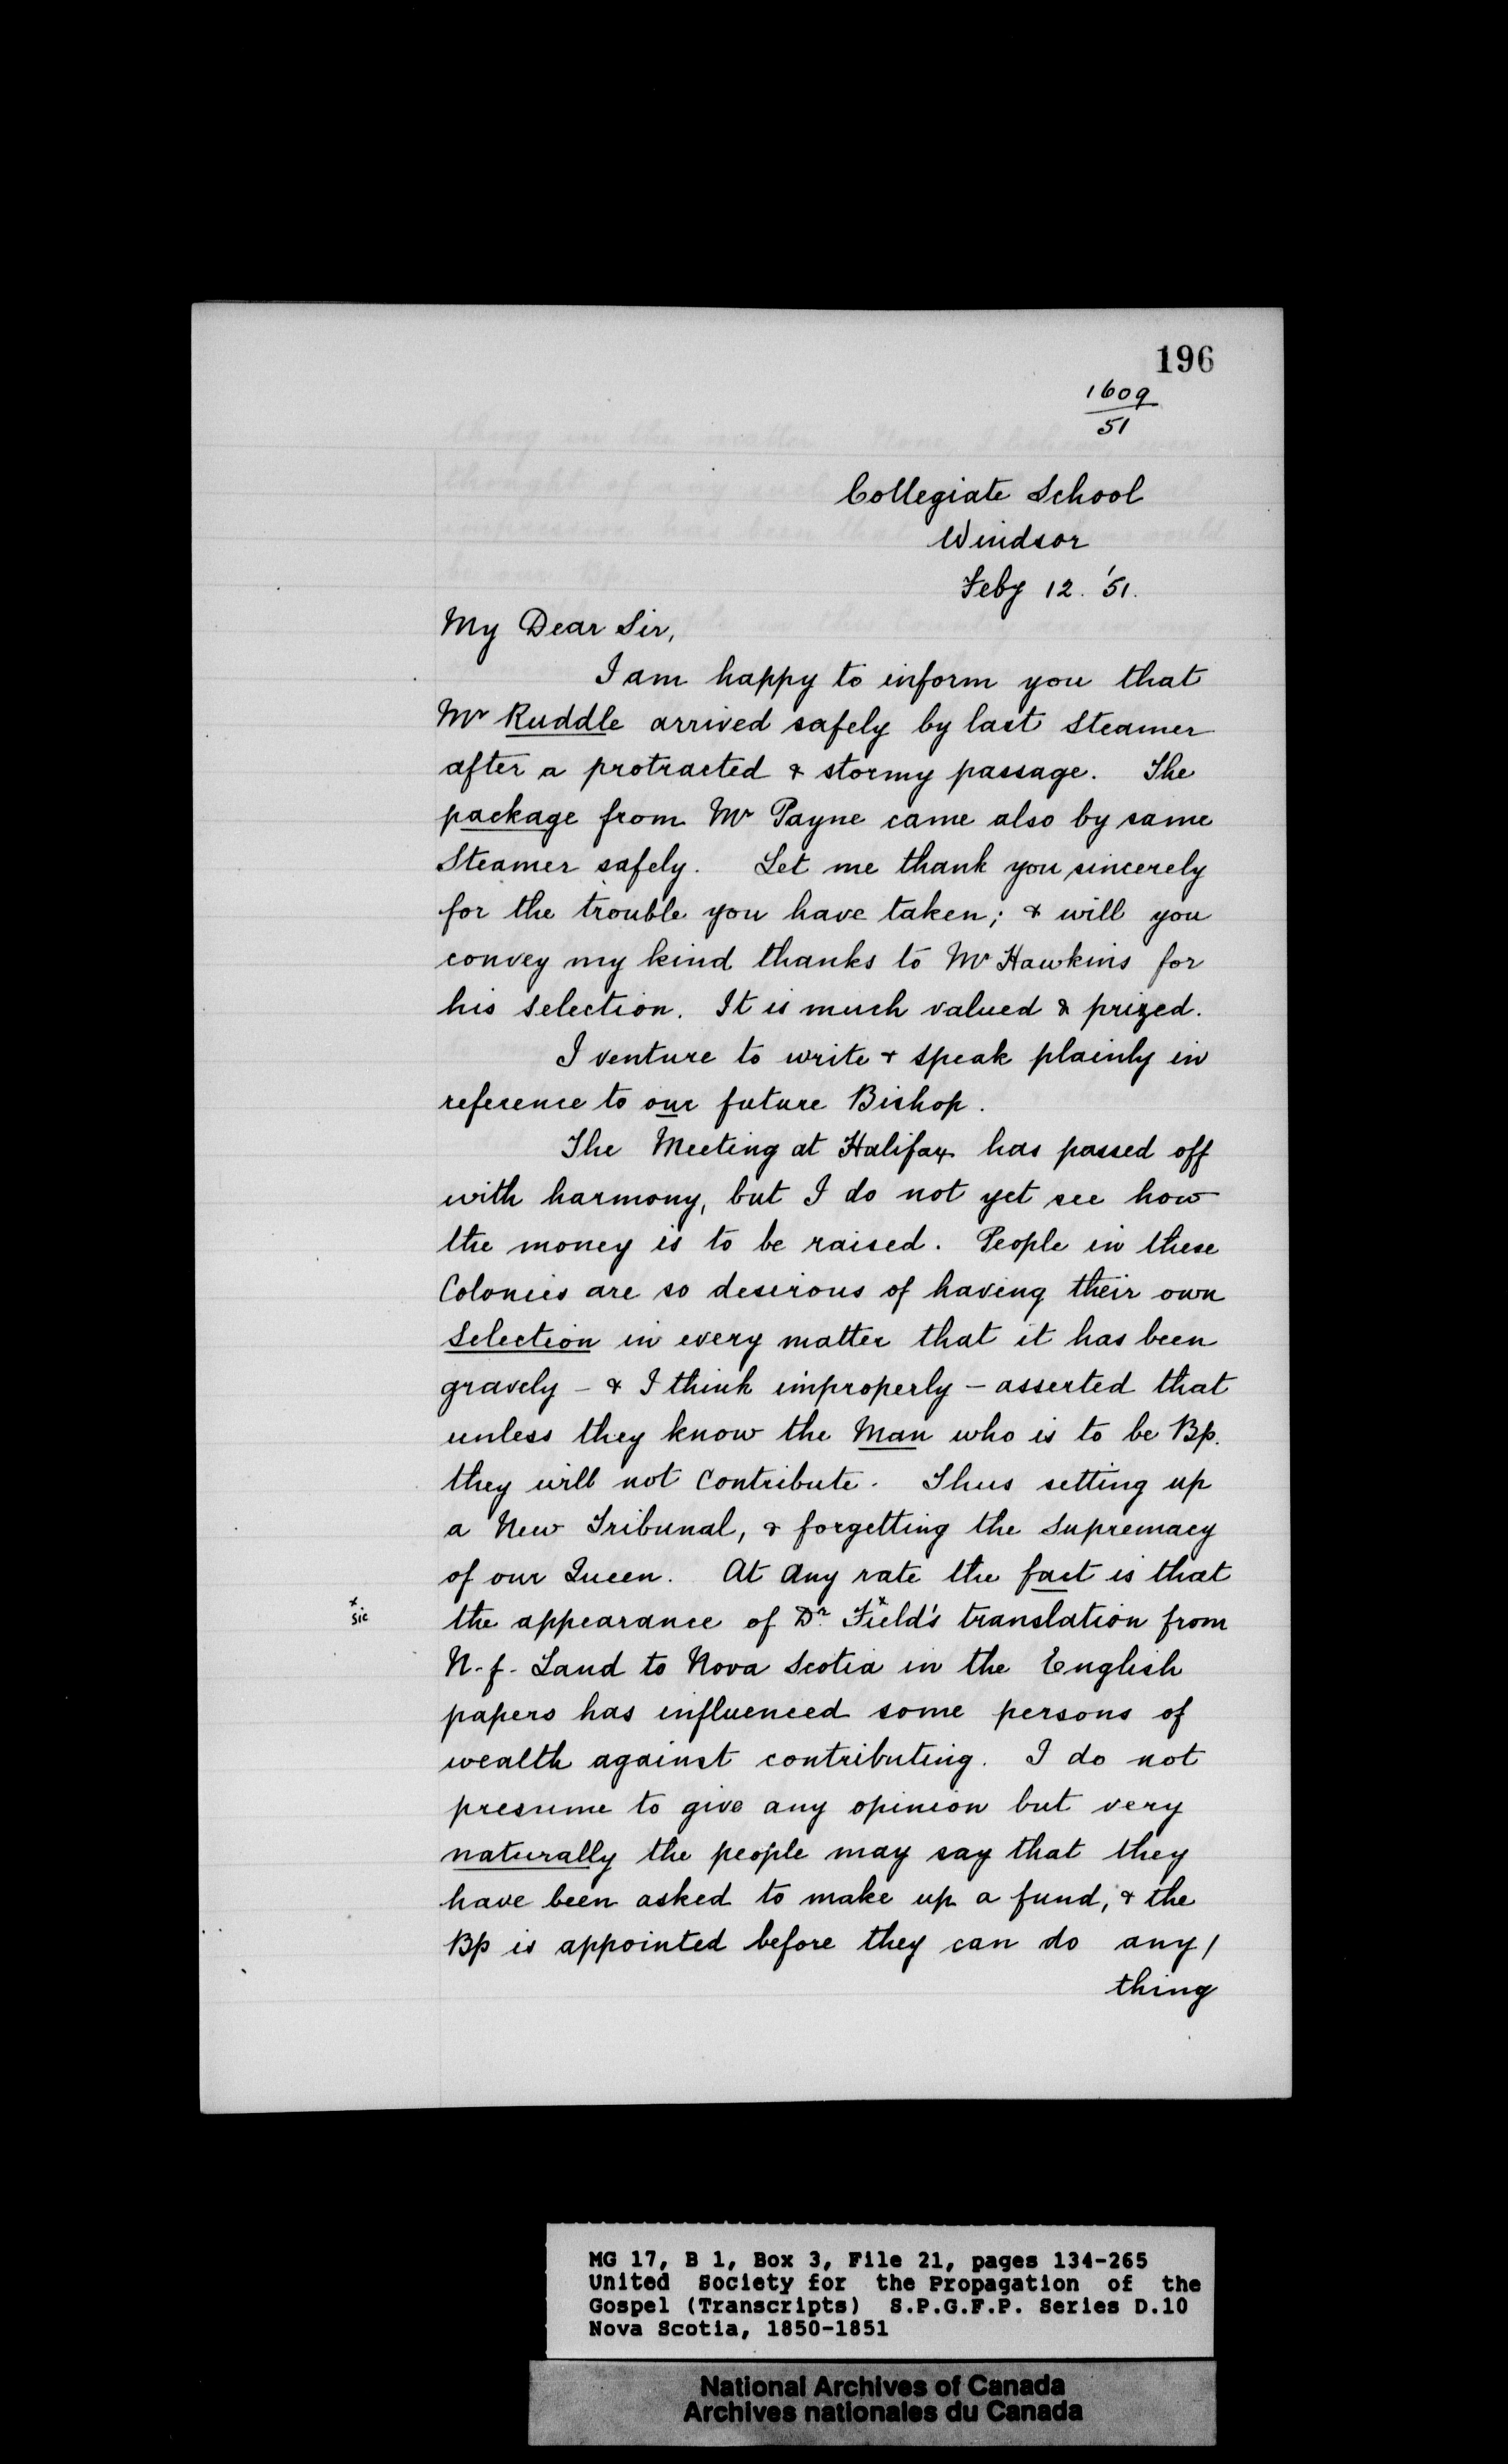 196
1609
51
Collegiate School
Windsor
Feby 12. '51.
My Dear Sir,
I am happy to inform you that
Mr Ruddle arrived safely by last Steamer
after a protracted & stormy passage. The
package from Mr Payne came also by same
Steamer safely. Let me thank you sincerely
for the trouble you have taken; & will you
convey my kind thanks to Mr Hawkins for
his selection. It is much valued & prized.
I venture to write & speak plainly in
reference to our future Bishop.
The Meeting at Halifax has passed off
with harmony, but I do not yet see how
the money is to be raised. People in these
Colonies are so desirous of having their own
Selection in every matter that it has been
gravely - & I think improperly - asserted that
unless they know the Man who is to be Bp.
they will not Contribute. Thus setting up
a New Tribunal, & forgetting the Supremacy
of our Queen. At any rate the fact is that
x
sic
the appearance of Dr. Field's x translation from
N.f. Land to Nova Scotia in the English
papers has influenced some persons of
wealth against contributing. I do not
presume to give any opinion but very
naturally the people may say that they
have been asked to make up a fund, & the
Bp is appointed before they can do any/
thing
MG 17, B 1, Box 3, File 21, pages 134-265
United Society for the Propagation of the
Gospel (Transcripts) S.P.G.F.P. Series D.10
Nova Scotia, 1850-1851
National Archives of Canada
Archives nationales du Canada